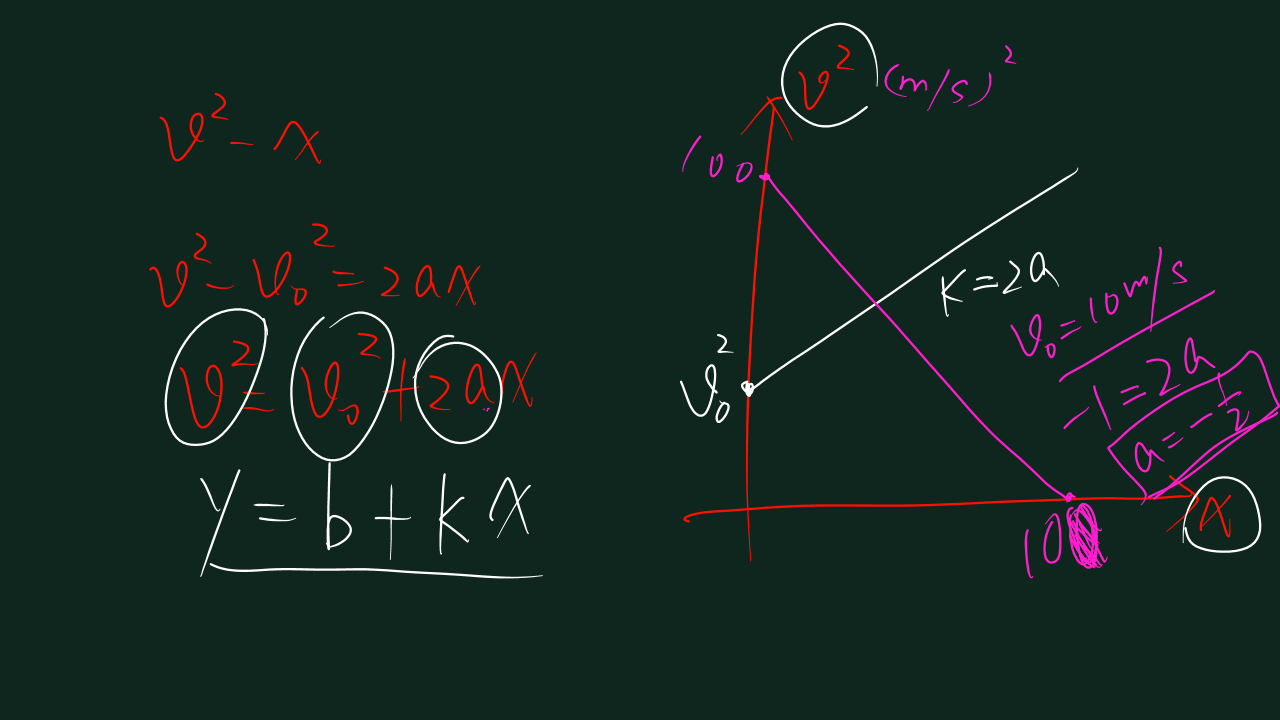 v² - x
v² - v₀² = 2ax
v² = v₀² + 2ax
y = b + kx
v² (m/s)²
100
K = 2a
v₀²
v₀ = 10 m/s
-1 = 2a
a = -1/2
10
x